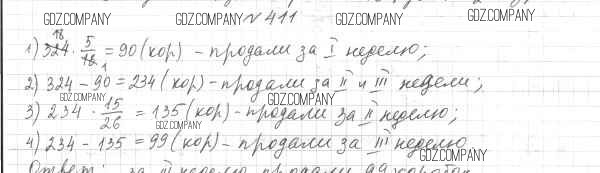 GDZ.COMPANY GDZ.COMPANY N 411 GDZ.COMPANY GDZ.COMPANY
1) 324 · 5/18 = 90 (кор) - продали за I неделю;
2) 324 - 90 = 234 (кор) - продали за II и III недели;
GDZ.COMPANY GDZ.COMPANY
3) 234 · 15/26 = 135 (кор) - продали за II неделю;
GDZ.COMPANY
4) 234 - 135 = 99 (кор) - продали за III неделю
GDZ.COMPANY
Ответ: за III неделю продали 99 коробок